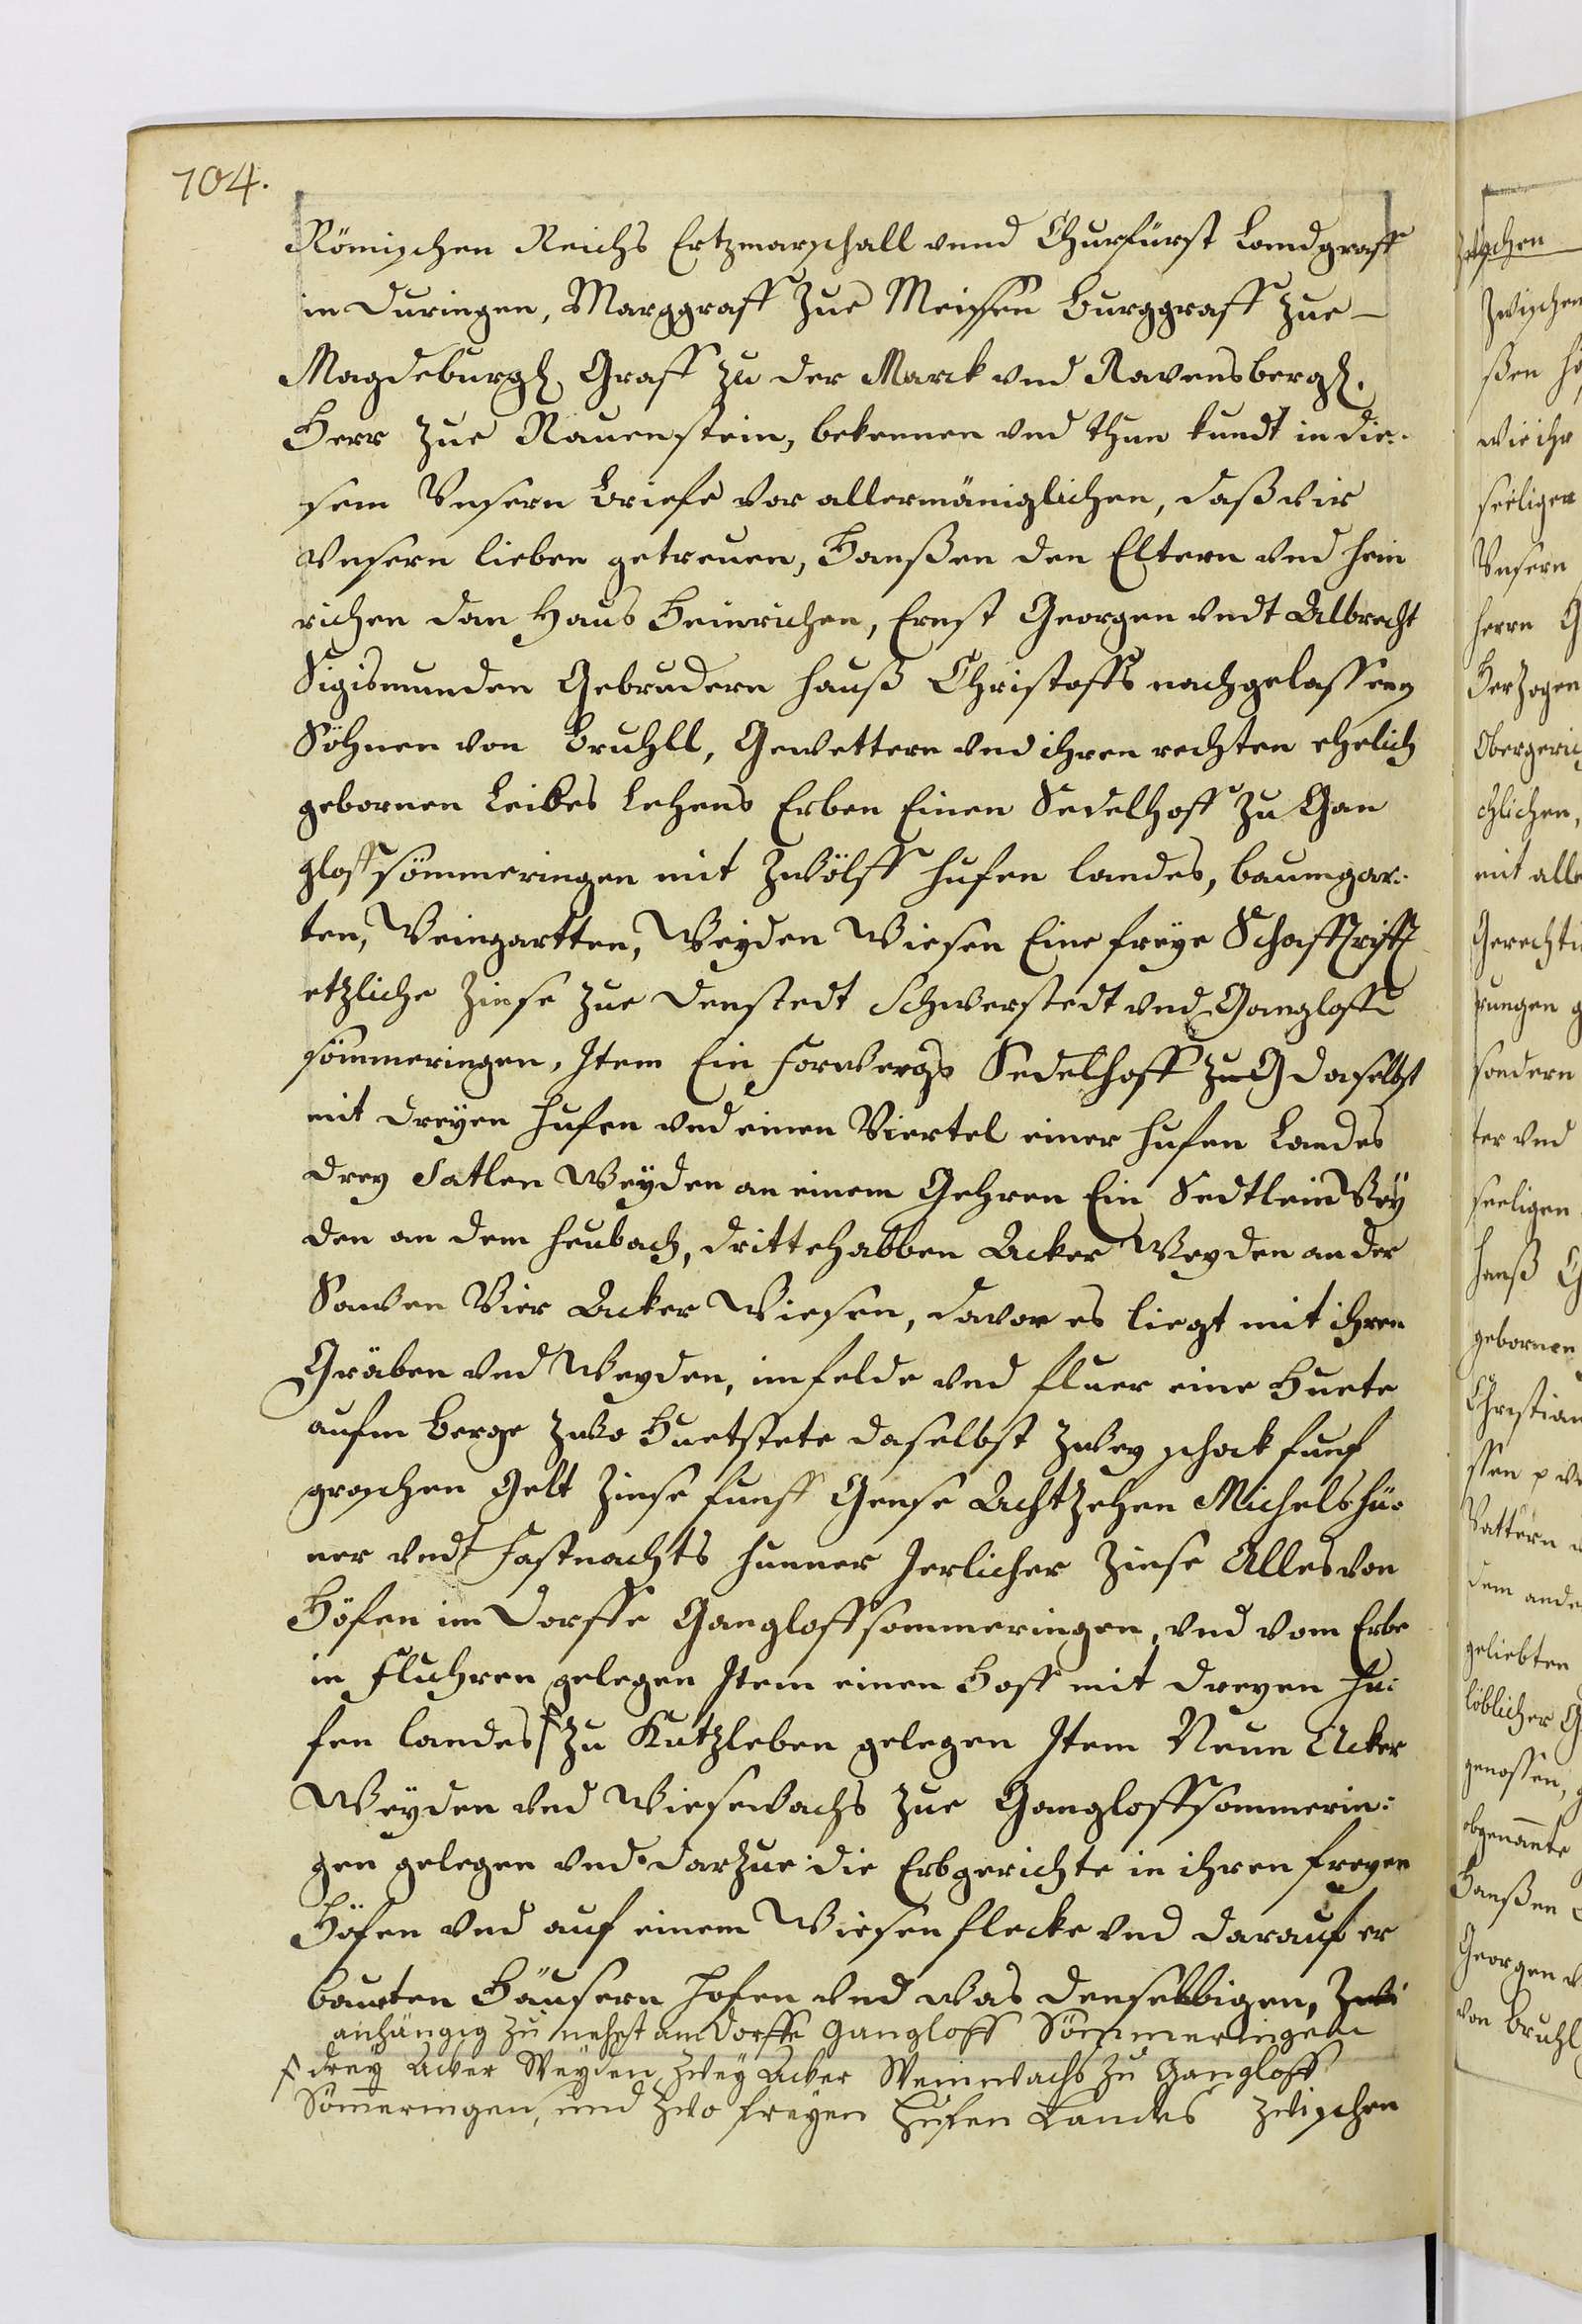 104.
Römischen Reichs Ertzmarschall vnnd Churfürst Landgraff
in Duringen, Marggraff zue Meissen Burggraff zue
Magdeburgk, Graff zu der Marck vnd Ravensbergk.
Herr zue Rauenstein, bekennen vnd thun kundt in die:
sem Vnsern Briefe vor allermäniglichen, daß wir
vnsern lieben getreuen, Hanßen den Eltern vnd Hein
richen dan Hans Heinrichen, Ernst Georgen vndt Albrecht
Sigismunden Gebrudern Hanß Christoffs nachgelassene
Söhnen von Bruhll, Gevettern vnd ihren rechten ehelich
gebornen Leibes Lehens Erben Einen Sedelhoff zu Gan
gloffsömmeringen mit Zwölff Hufen landes, baumgar:
ten, Weingartten, Weyden Wiesen Eine freye Schafftrifft
etzliche Zinse zue Denstedt Schwerstedt vnd Gangloff
sömmeringen, Item Ein forwergs Sedelhoff zu G daselbst
mit dreyen Hufen vnd einen Viertel einer Hufen Landes
drey Satlen Weyden an einem Gehren Ein Sedtlein Wey
den an dem Heubach, drittehabben Acker Weyden an der
Sawen Vier Acker Wiesen, davor es liegt mit ihren
Gräben vnd Weyden, im felde vnd fluer eine Huete
aufm Berge zwo Huetstete daselbst zwey schock funf
groschen Gelt Zinse funff Gense Achtzehen Michelshü:
ner vndt Fastnachts Hunner Jerlicher Zinse Alles von
Höfen im Dorffe Gangloffsommeringen, vnd vom Erbe
in Fluhren gelegen Item einen Hoff mit dreyen Hu:
fen landes zu Kutzleben gelegen Item Neun Acker
Weyden vnd Wiesewachs zue Gangloffsommerin:
gen gelegen vnd darzue die Erbgerichte in ihren freyen
Höfen vnd auf einem Wiesenflecke vnd darauf er
bauten Häusern Hofen vnd was denselbigen, zwi
anhängig zu nehst am Dorffe Gangloff Sömmeringen
drey Acker Weyden zwey Acker Weinwachs zu Gangloff
Sömeringen, und zwo freyen Hufen Landes zwischen
zwischen
wie ihr
seeligen
Vnsern
herrn G
Herzogen
Obergeric
chlichen,
mit alle
Gerechti
sondern
ter vnd
seeligen
Hanß
gebornen
Christian
Vattern
dem ande
geliebten
löblicher G
genossen,
obgenante
Hanßen
Georgen
von Bruhl